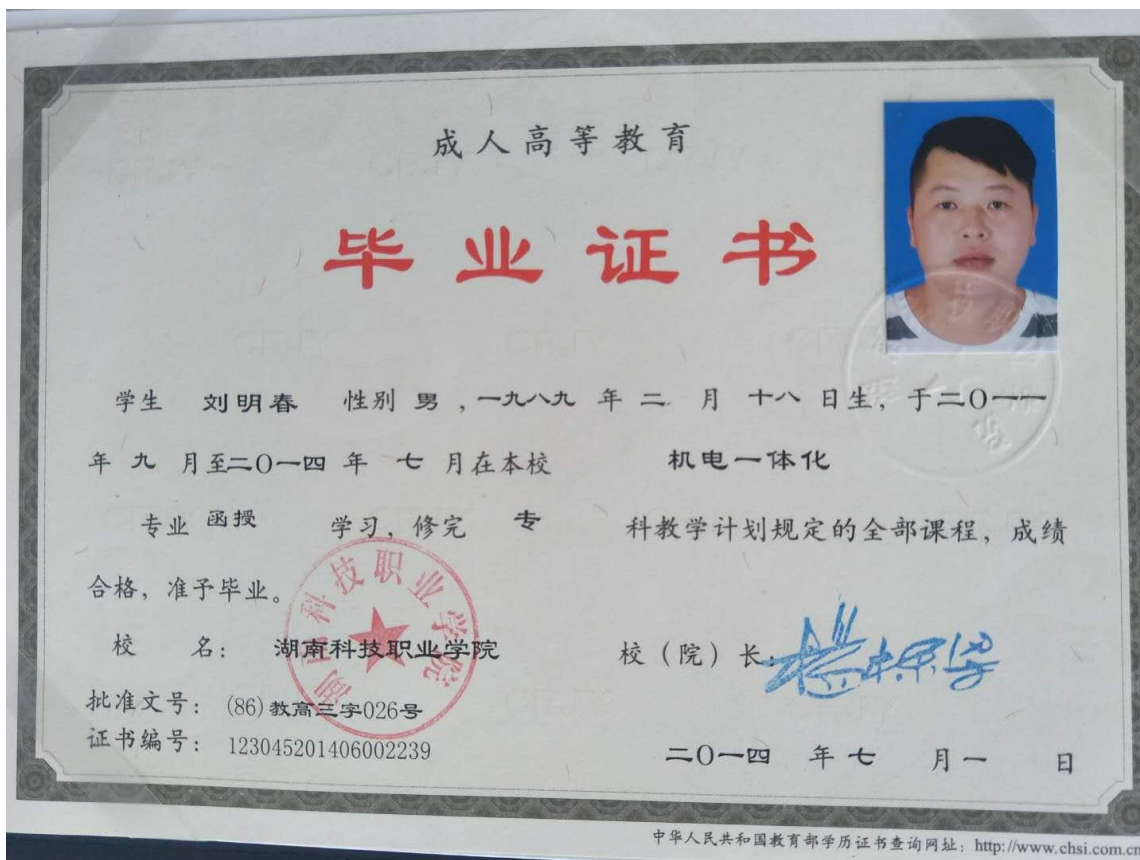 成人高等教育
毕业证书
学生 刘明春 性别 男 ,一九八九 年 二 月 十八 日生, 于二〇一一
年 九 月至二〇一四 年 七 月在本校 机电一体化
专业 函授 学习, 修完 专 科教学计划规定的全部课程, 成绩
合格, 准予毕业。
校 名: 湖南科技职业学院 校（院）长:
湖南科技职业学院
批准文号: (86)教高三字026号
证书编号: 123045201406002239
二〇一四 年 七 月 一 日
中华人民共和国教育部学历证书查询网址: http://www.chsi.com.cn